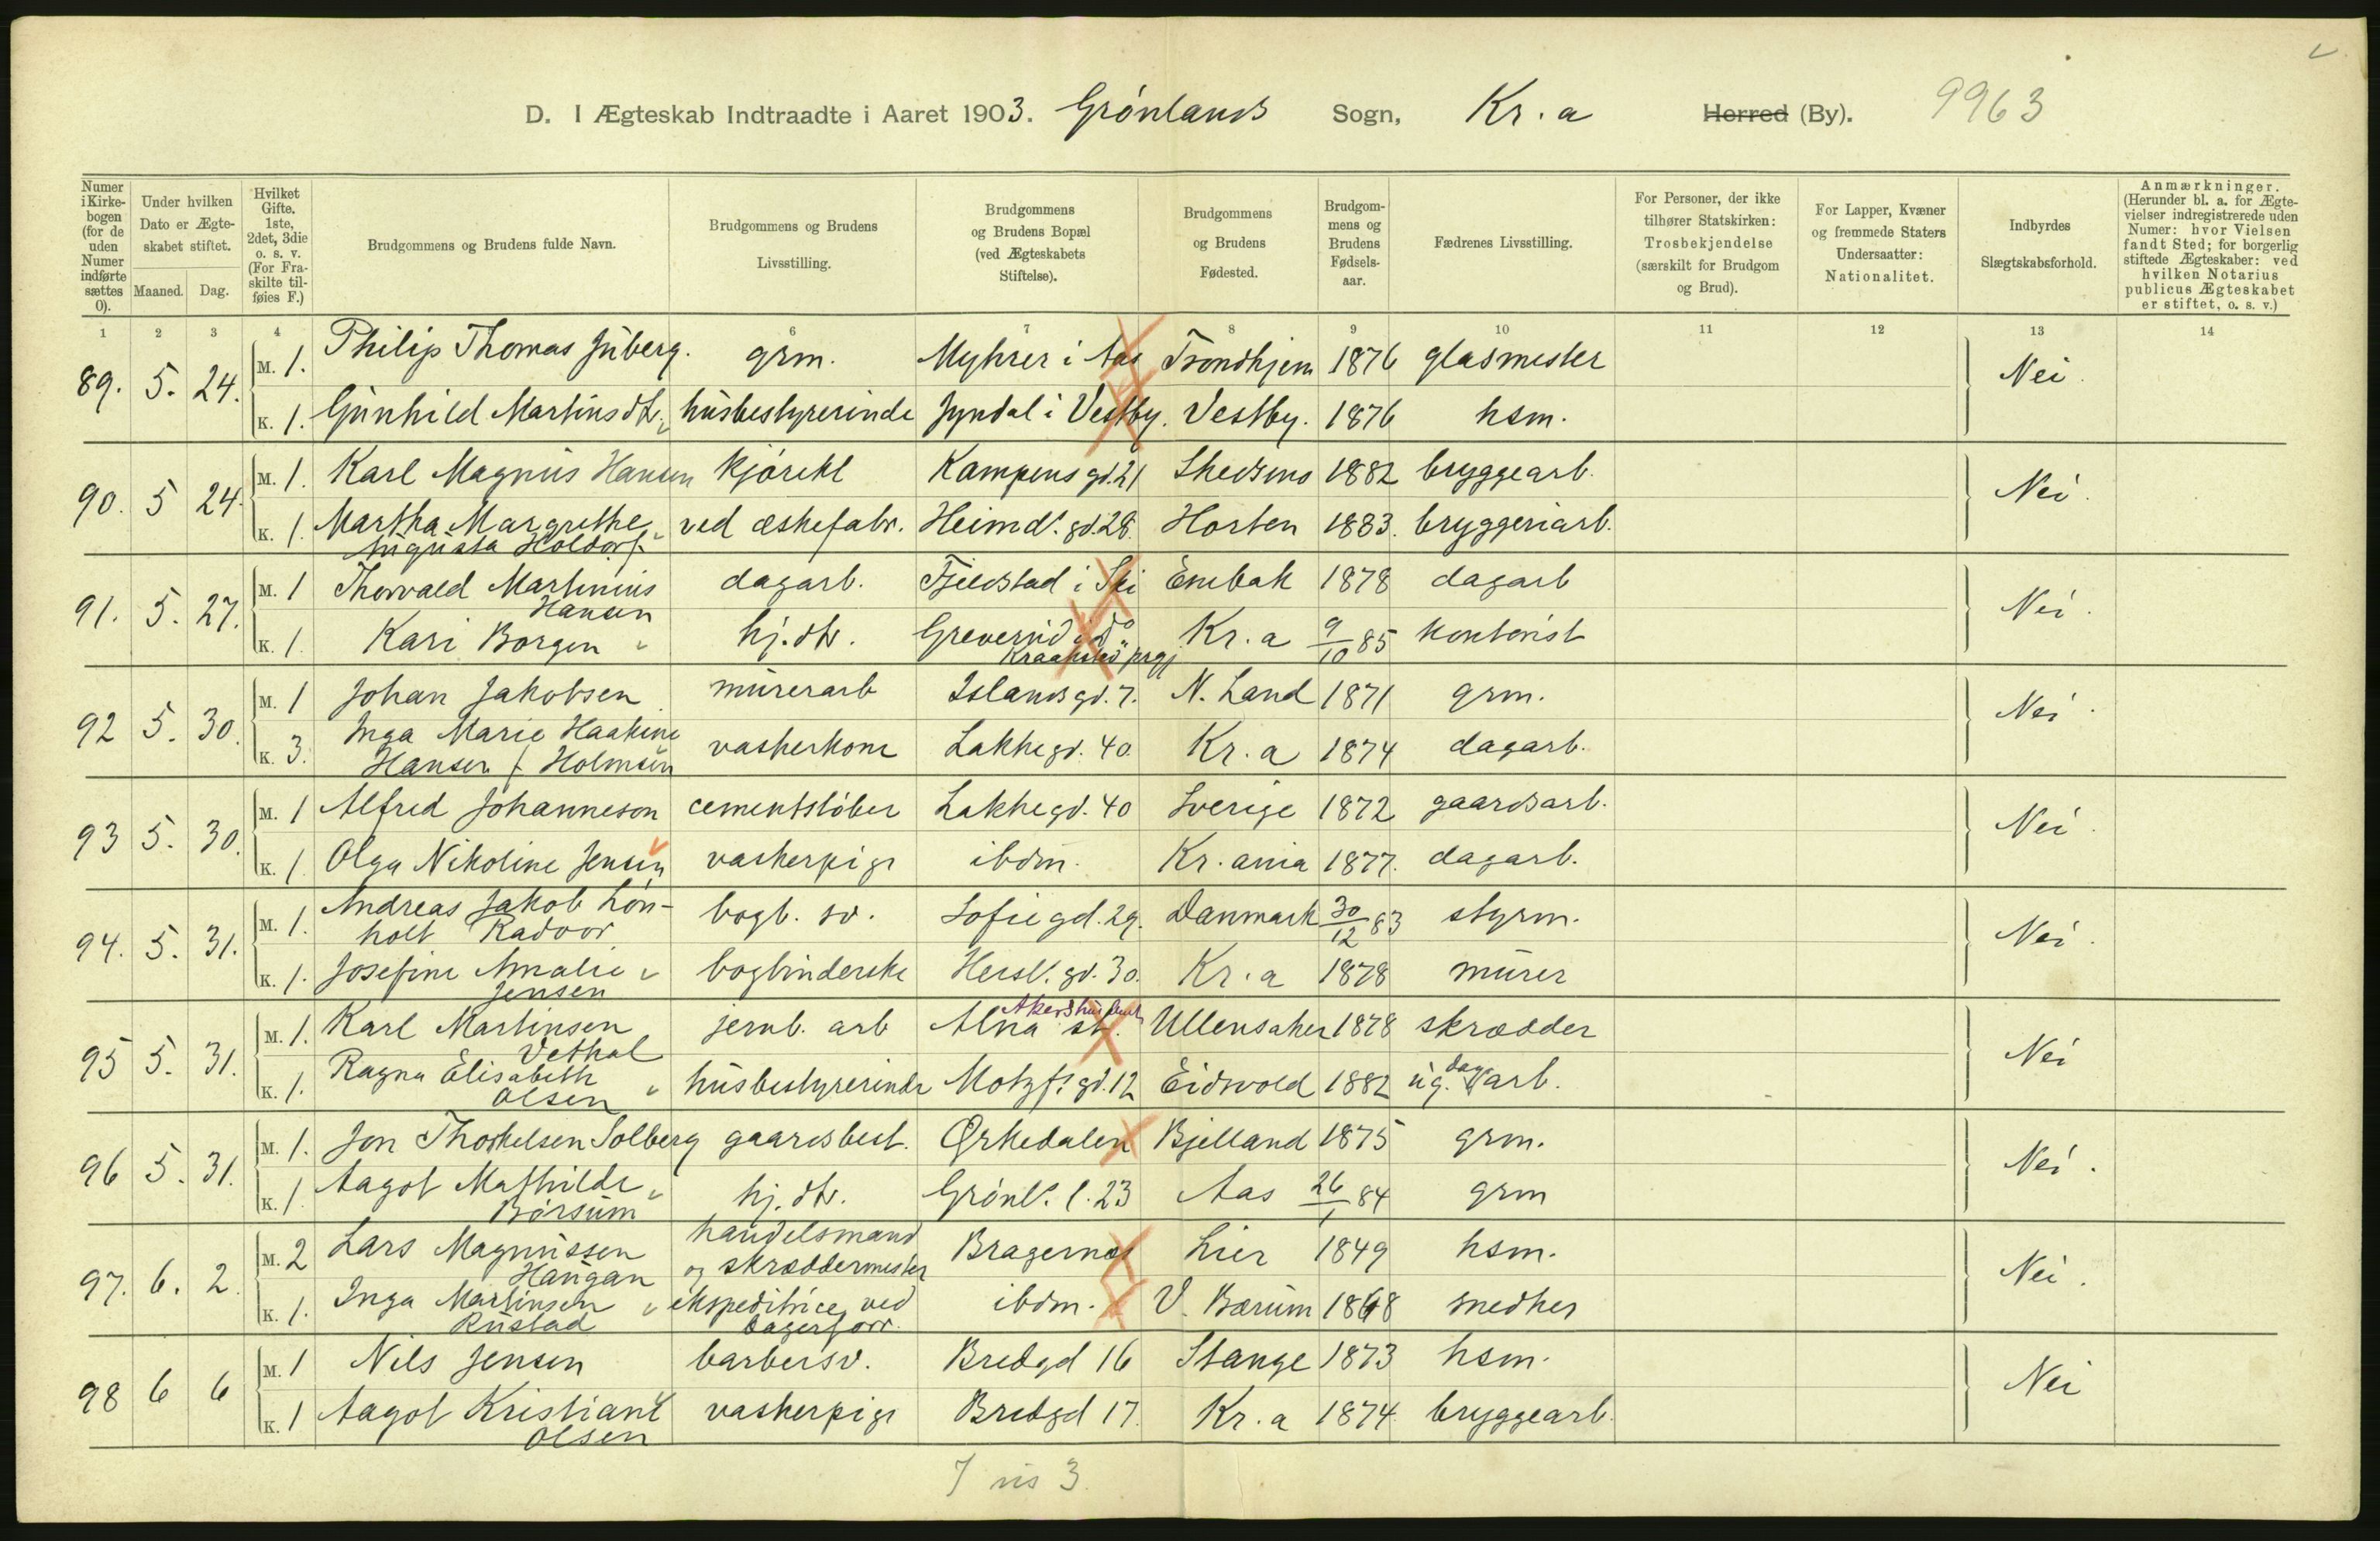 D. I Ægteskab Indtraadte i Aaret 1903. Grønlands Sogn, Kr.a Herred (By). 9963
Numer i Kirkebogen (for de uden Numer indførte sættes 0).
Under hvilken Dato er Ægteskabet stiftet.
Maaned. Dag.
Hvilket Gifte. 1ste, 2det, 3die o. s. v. (For Fraskilte tilføies F.)
Brudgommens og Brudens fulde Navn.
Brudgommens og Brudens Livsstilling.
Brudgommens og Brudens Bopæl (ved Ægteskabets Stiftelse).
Brudgommens og Brudens Fødested.
Brudgommens og Brudens Fødselsaar.
Fædrenes Livsstilling.
For Personer, der ikke tilhører Statskirken: Trosbekjendelse (særskilt for Brudgom og Brud).
For Lapper, Kvæner og fremmede Staters Undersaatter: Nationalitet.
Indbyrdes Slægtskabsforhold.
Anmærkninger. (Herunder bl. a. for Ægtevielser indregistrerede uden Numer: hvor Vielsen fandt Sted; for borgerlig stiftede Ægteskaber: ved hvilken Notarius publicus Ægteskabet er stiftet, o. s. v.)
1 2 3 4 6 7 8 9 10 11 12 13 14
89. 5. 24. M. 1. Philip Thomas Juberg. grm. Myhrer i Aas Trondhjem 1876 glasmester Nei
K. 1. Gunhild Martinsdtr. husbestyrerinde Jyndal i Vestby. Vestby. 1876 hsm.
90. 5 24. M. 1. Karl Magnus Hansen kjørekl Kampens gd. 21 Skedsmo 1882 bryggearb. Nei.
K. 1. Martha Margrethe Augusta Holdorf. ved æskefabr. Heimd.s gd. 28. Horten 1883. bryggeriarb.
91. 5. 27. M. 1 Thorvald Martinius Hansen dagarb. Fjeldstad i Ski Enebak 1878 dagarb Nei.
K. 1 Kari Borgen hj. dtr. Greverud Kraakstad prgj Kr.a 9/10 85 kontorist
92 5. 30. M. 1 Johan Jakobsen murerarb Islands gd. 7. N. Land 1871 grm. Nei.
K. 3. Inga Marie Haakine Hansen f. Holmsen vaskerkone Lakkegd. 40. Kr.a 1874 dagarb.
93 5. 30. M. 1 Alfred Johanneson cementstøber Lakkegd. 40 Sverige 1872 gaardsarb. Nei.
K. 1 Olga Nikoline Jensen vaskerpige ibdm. Kr.ania 1877. dagarb.
94. 5. 31. M. 1. Andreas Jakob Lønholt Radoor bogb. sv. Sofiegd. 29. Danmark 30/12 83 styrm. Nei.
K. 1. Josefine Amalie Jensen bogbinderske Hersl. gd. 30. Kr.a 1878 murer
95 5. 31. M. 1. Karl Martinsen Vethal jernb. arb Alna st. Akershus Ullensaker 1878 skrædder Nei
K. 1. Ragna Elisabeth Olsen husbestyrerinde Motzf.s gd. 12 Eidsvold 1882 ug. dagarb.
96 5. 31. M. 1. Jon Thorkelsen Solberg gaardsbest. Ørkedalen Bjelland 1875 grm. Nei.
K. 1 Aagot Mathilde Børsum hj. dtr. Grønl.s l. 23 Aas 26/1 84 grm
97. 6. 2. M. 2 Lars Magnussen Haugan handelsmand og skræddermester Bragernæs Lier 1849 hsm. Nei.
K. 1. Inga Martinsen Rustad ekspeditrice ved bagerforr. ibdm. V. Bærum 1868 snedker
98 6 6 M. 1 Nils Jensen barbersv. Bredgd 16 Stange 1873 hsm. Nei
K. 1 Aagot Kristiane Olsen vaskerpige Bredgd 17. Kr.a 1874. bryggearb.